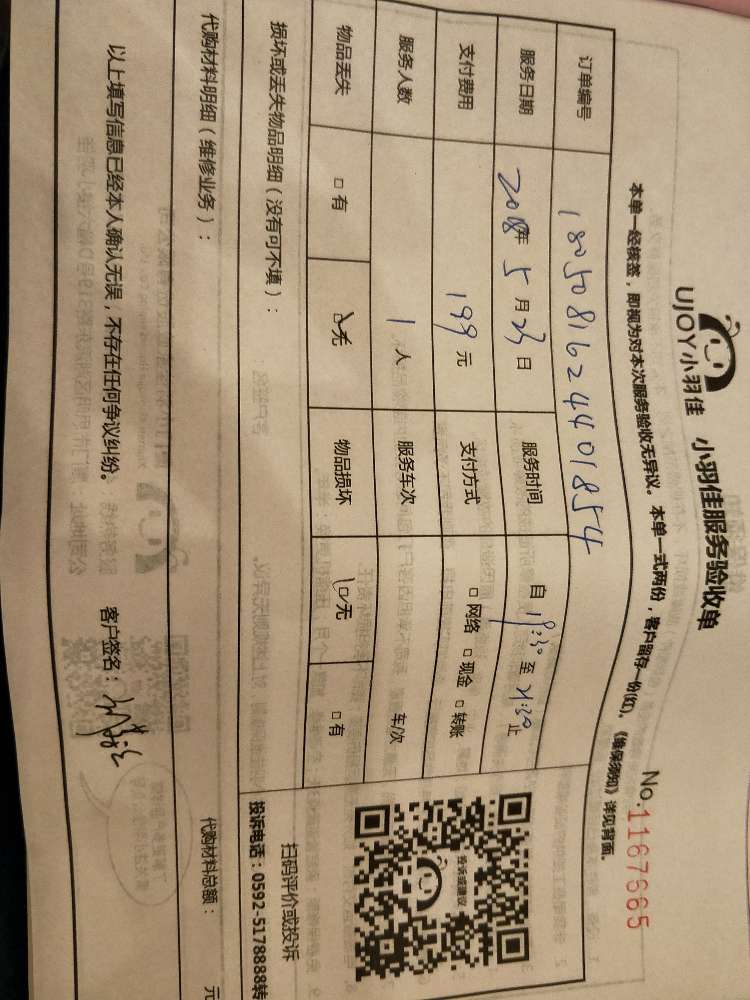 UJOY小羽佳 小羽佳服务验收单
No.1167665
本单一经核签,即视为对本次服务验收无异议。本单一式两份,客户留存一份(红)。《维保须知》详见背面。
订单编号 1805081624401854
服务日期 2018年 5月23日 服务时间 自 19:30 至 21:30 止
支付费用 199 元 支付方式 □网络 □现金 □转账
服务人数 1 人 服务车次 车/次
物品丢失 □有 □无 物品损坏 □无 □有
投诉或建议
扫码评价或投诉
投诉电话:0592-5178888转
损坏或丢失物品明细(没有可不填):
代购材料明细(维修业务): 代购材料总额: 元
以上填写信息已经本人确认无误,不存在任何争议纠纷。 客户签名: